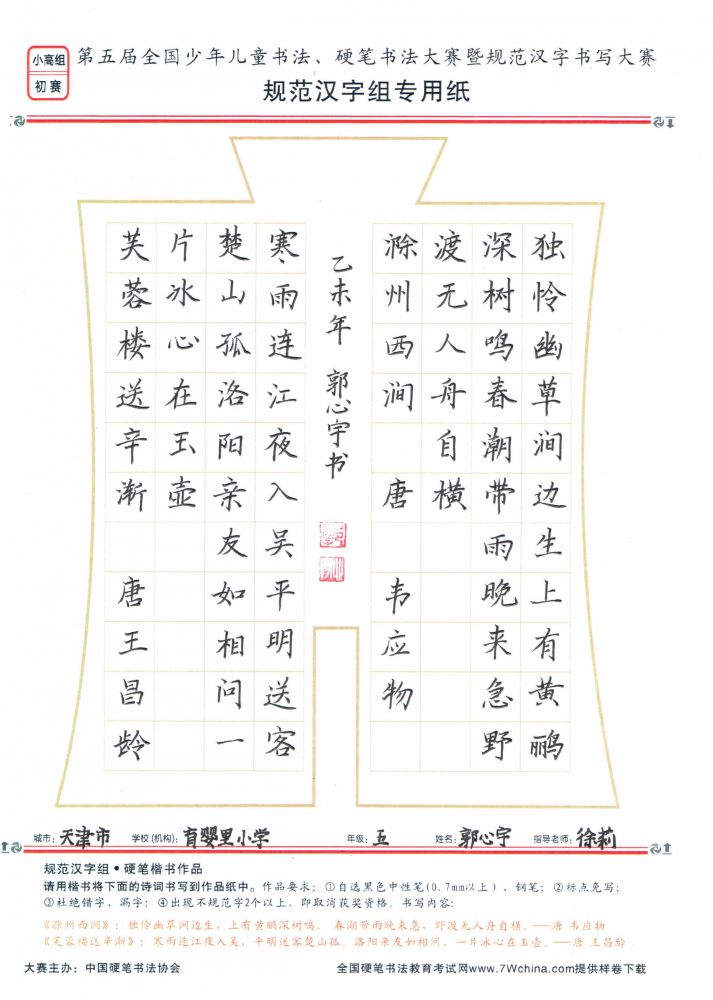 小高组
初赛
第五届全国少年儿童书法、硬笔书法大赛暨规范汉字书写大赛
规范汉字组专用纸
独怜幽草涧边生上有黄鹂
深树鸣春潮带雨晚来急野
渡无人舟自横
滁州西涧 唐 韦应物
乙未年 郭心宇书
寒雨连江夜入吴平明送客
楚山孤洛阳亲友如相问一
片冰心在玉壶
芙蓉楼送辛渐 唐 王昌龄
城市：天津市 学校(机构)：育婴里小学 年级：五 姓名：郭心宇 指导老师：徐莉
规范汉字组•硬笔楷书作品
请用楷书将下面的诗词书写到作品纸中。作品要求：①自选黑色中性笔(0.7mm以上)、钢笔；②标点免写；
③杜绝错字、漏字；④出现不规范字2个以上，即取消获奖资格。书写内容：
《滁州西涧》：独怜幽草涧边生，上有黄鹂深树鸣。 春潮带雨晚来急，野渡无人舟自横。——唐 韦应物
《芙蓉楼送辛渐》：寒雨连江夜入吴，平明送客楚山孤。洛阳亲友如相问，一片冰心在玉壶。——唐 王昌龄
大赛主办：中国硬笔书法协会 全国硬笔书法教育考试网www.7Wchina.com提供样卷下载